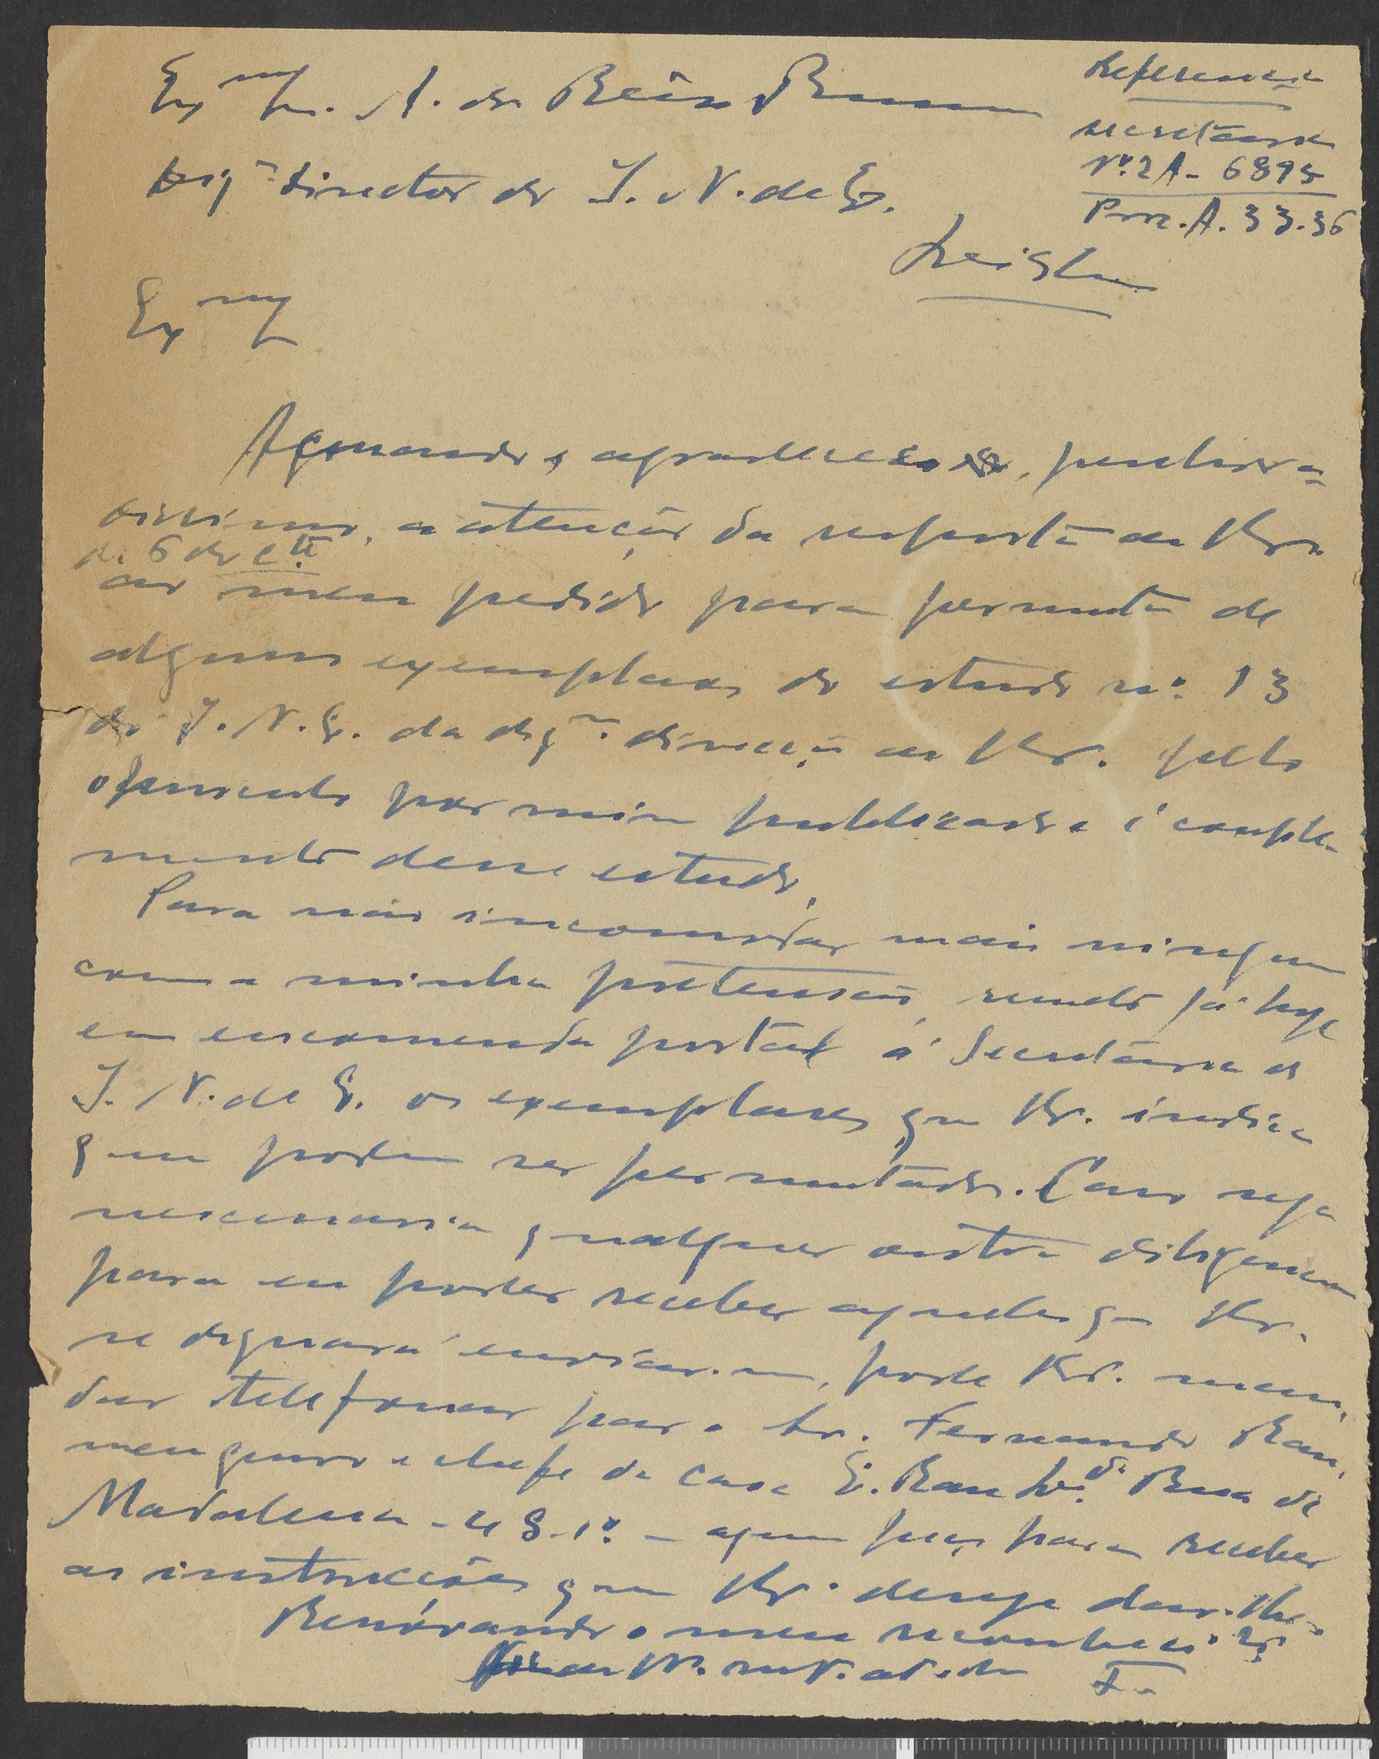 Exmo Sr. A. de
Referencia
Secretaria
Nº 2A - 6895
Proc. A. 33.36
Digmo Director do I. N. de E.
Exmo Sr
agradecer penhora-
dissimo, a atenção da resposta de V. Exa
de 6 do cte
ao meu pedido para permuta de
alguns exemplares do estudo nº 13
do I. N. E. da digma direcção de V. Exa. pelo
opusculo por mim publicado e comple-
mento desse estudo.
Para não incomodar mais ninguem
com a minha pretensão, remeto já hoje
em encomenda postal á Secretaria do
I. N. de E. os exemplares que V. Exa. indica
que podem ser permutados. Caso seja
necessaria qualquer outra diligencia
para eu poder receber aqueles que V. Exa.
se dignará enviar-me, pode V. Exa. man-
dar telefonar para o Sr. Fernando Rau,
meu genro e chefe da casa E. Rau Lda. Rua da
Madalena - 48-1º - a quem peço para receber
as instrucções que V. Exa. deseje dar-lhe.
Renovando o meu reconhecimto
de V. Exa.